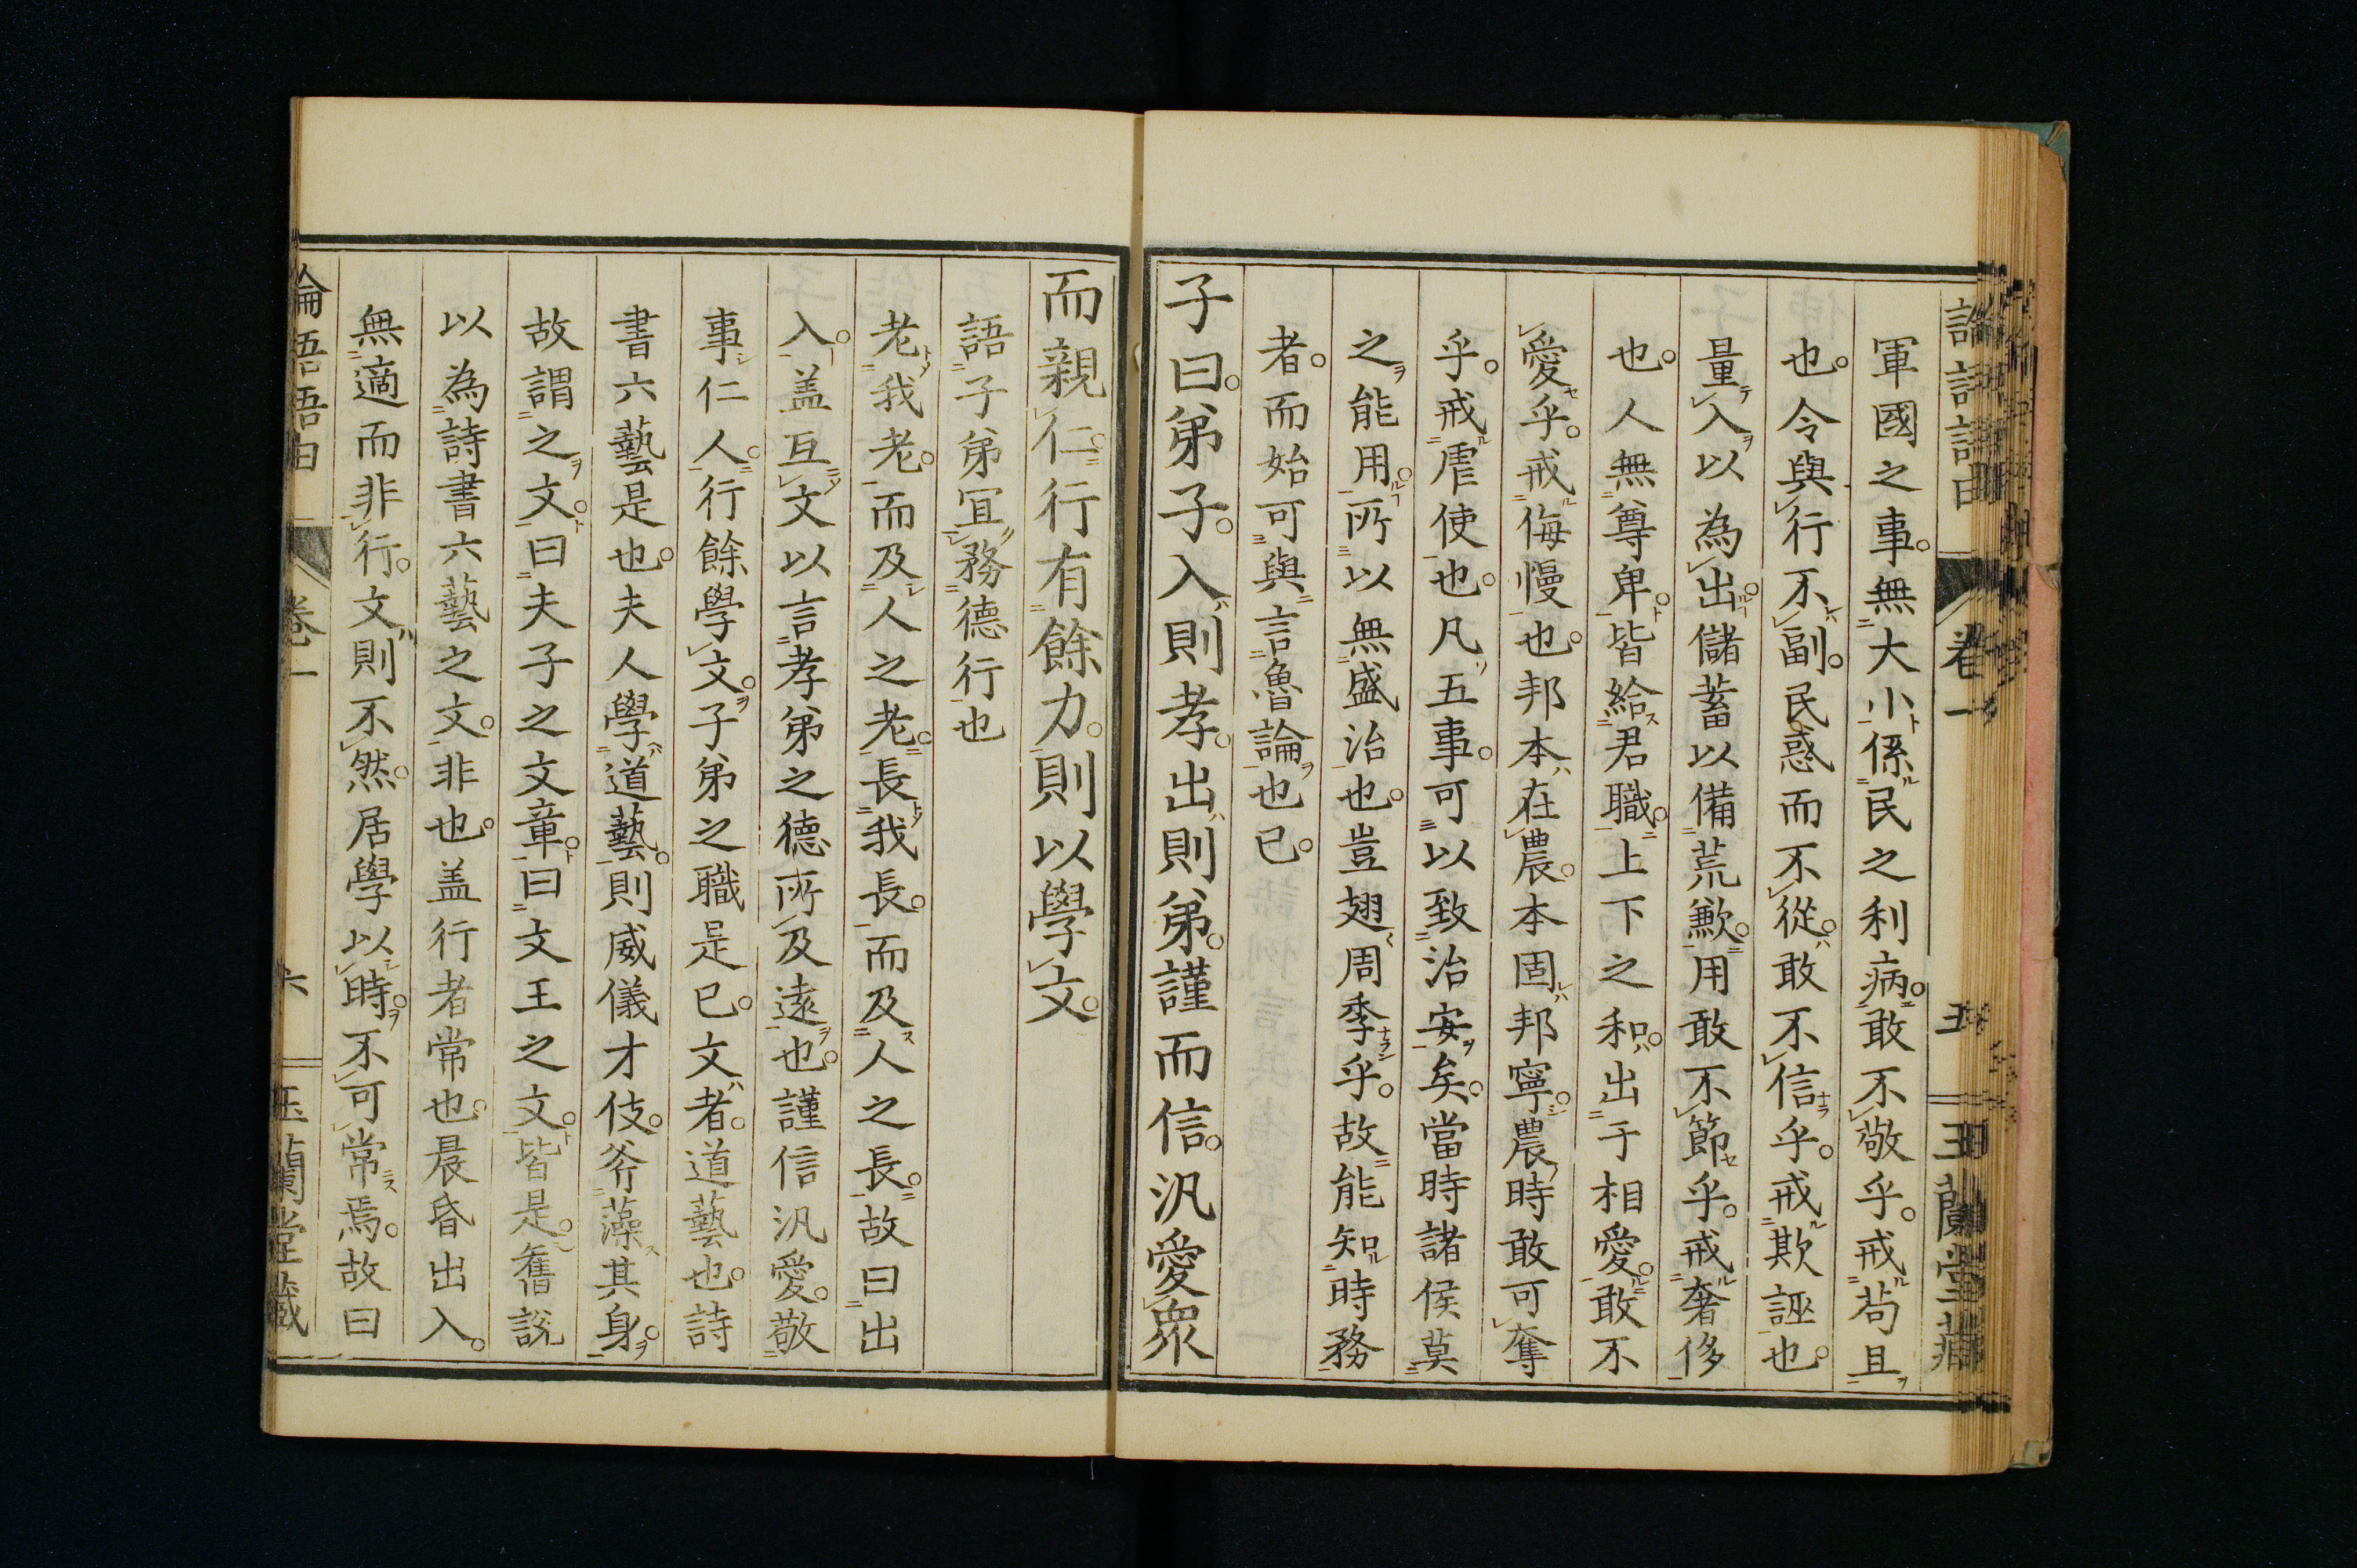 論語語由 卷一 五 玉蘭堂藏
軍國之事。無大小係民之利病。敢不敬乎。戒苟且
也。令與行不副。民惑而不從。敢不信乎。戒欺誣也。
量入以為出。儲蓄以備荒歉。用敢不節乎。戒奢侈
也。人無尊卑。皆給君職。上下之和。出于相愛。敢不
愛乎。戒侮慢也。邦本在農。本固邦寧。農時敢可奪
乎。戒虐使也。凡五事。可以致治安矣。當時諸侯莫
之能用。所以無盛治也。豈翅周季乎。故能知時務
者。而始可與言魯論也已。
子曰。弟子。入則孝。出則弟。謹而信。汎愛眾
而親仁。行有餘力。則以學文。
語子弟宜務德行也
老我老。而及人之老。長我長。而及人之長。故曰出
入。盖互文以言孝弟之德所及遠也。謹信汎愛。敬
事仁人。行餘學文。子弟之職是已。文者。道藝也。詩
書六藝是也。夫人學道藝。則威儀才伎。斧藻其身。
故謂之文。曰夫子之文章。曰文王之文。皆是。舊說
以為詩書六藝之文。非也。盖行者常也。晨昏出入。
無適而非行。文則不然。居學以時。不可常焉。故曰
論語語由 卷一 六 玉蘭堂藏